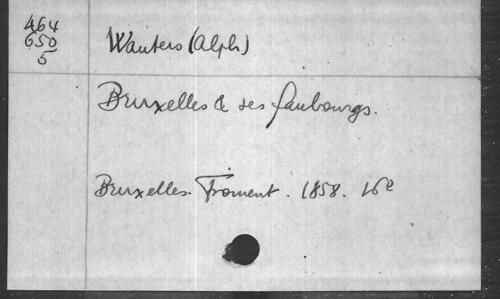 464
650
5
Wauters (Alph)
Bruxelles & ses faubourgs.
Bruxelles. Froment. 1858. 16º